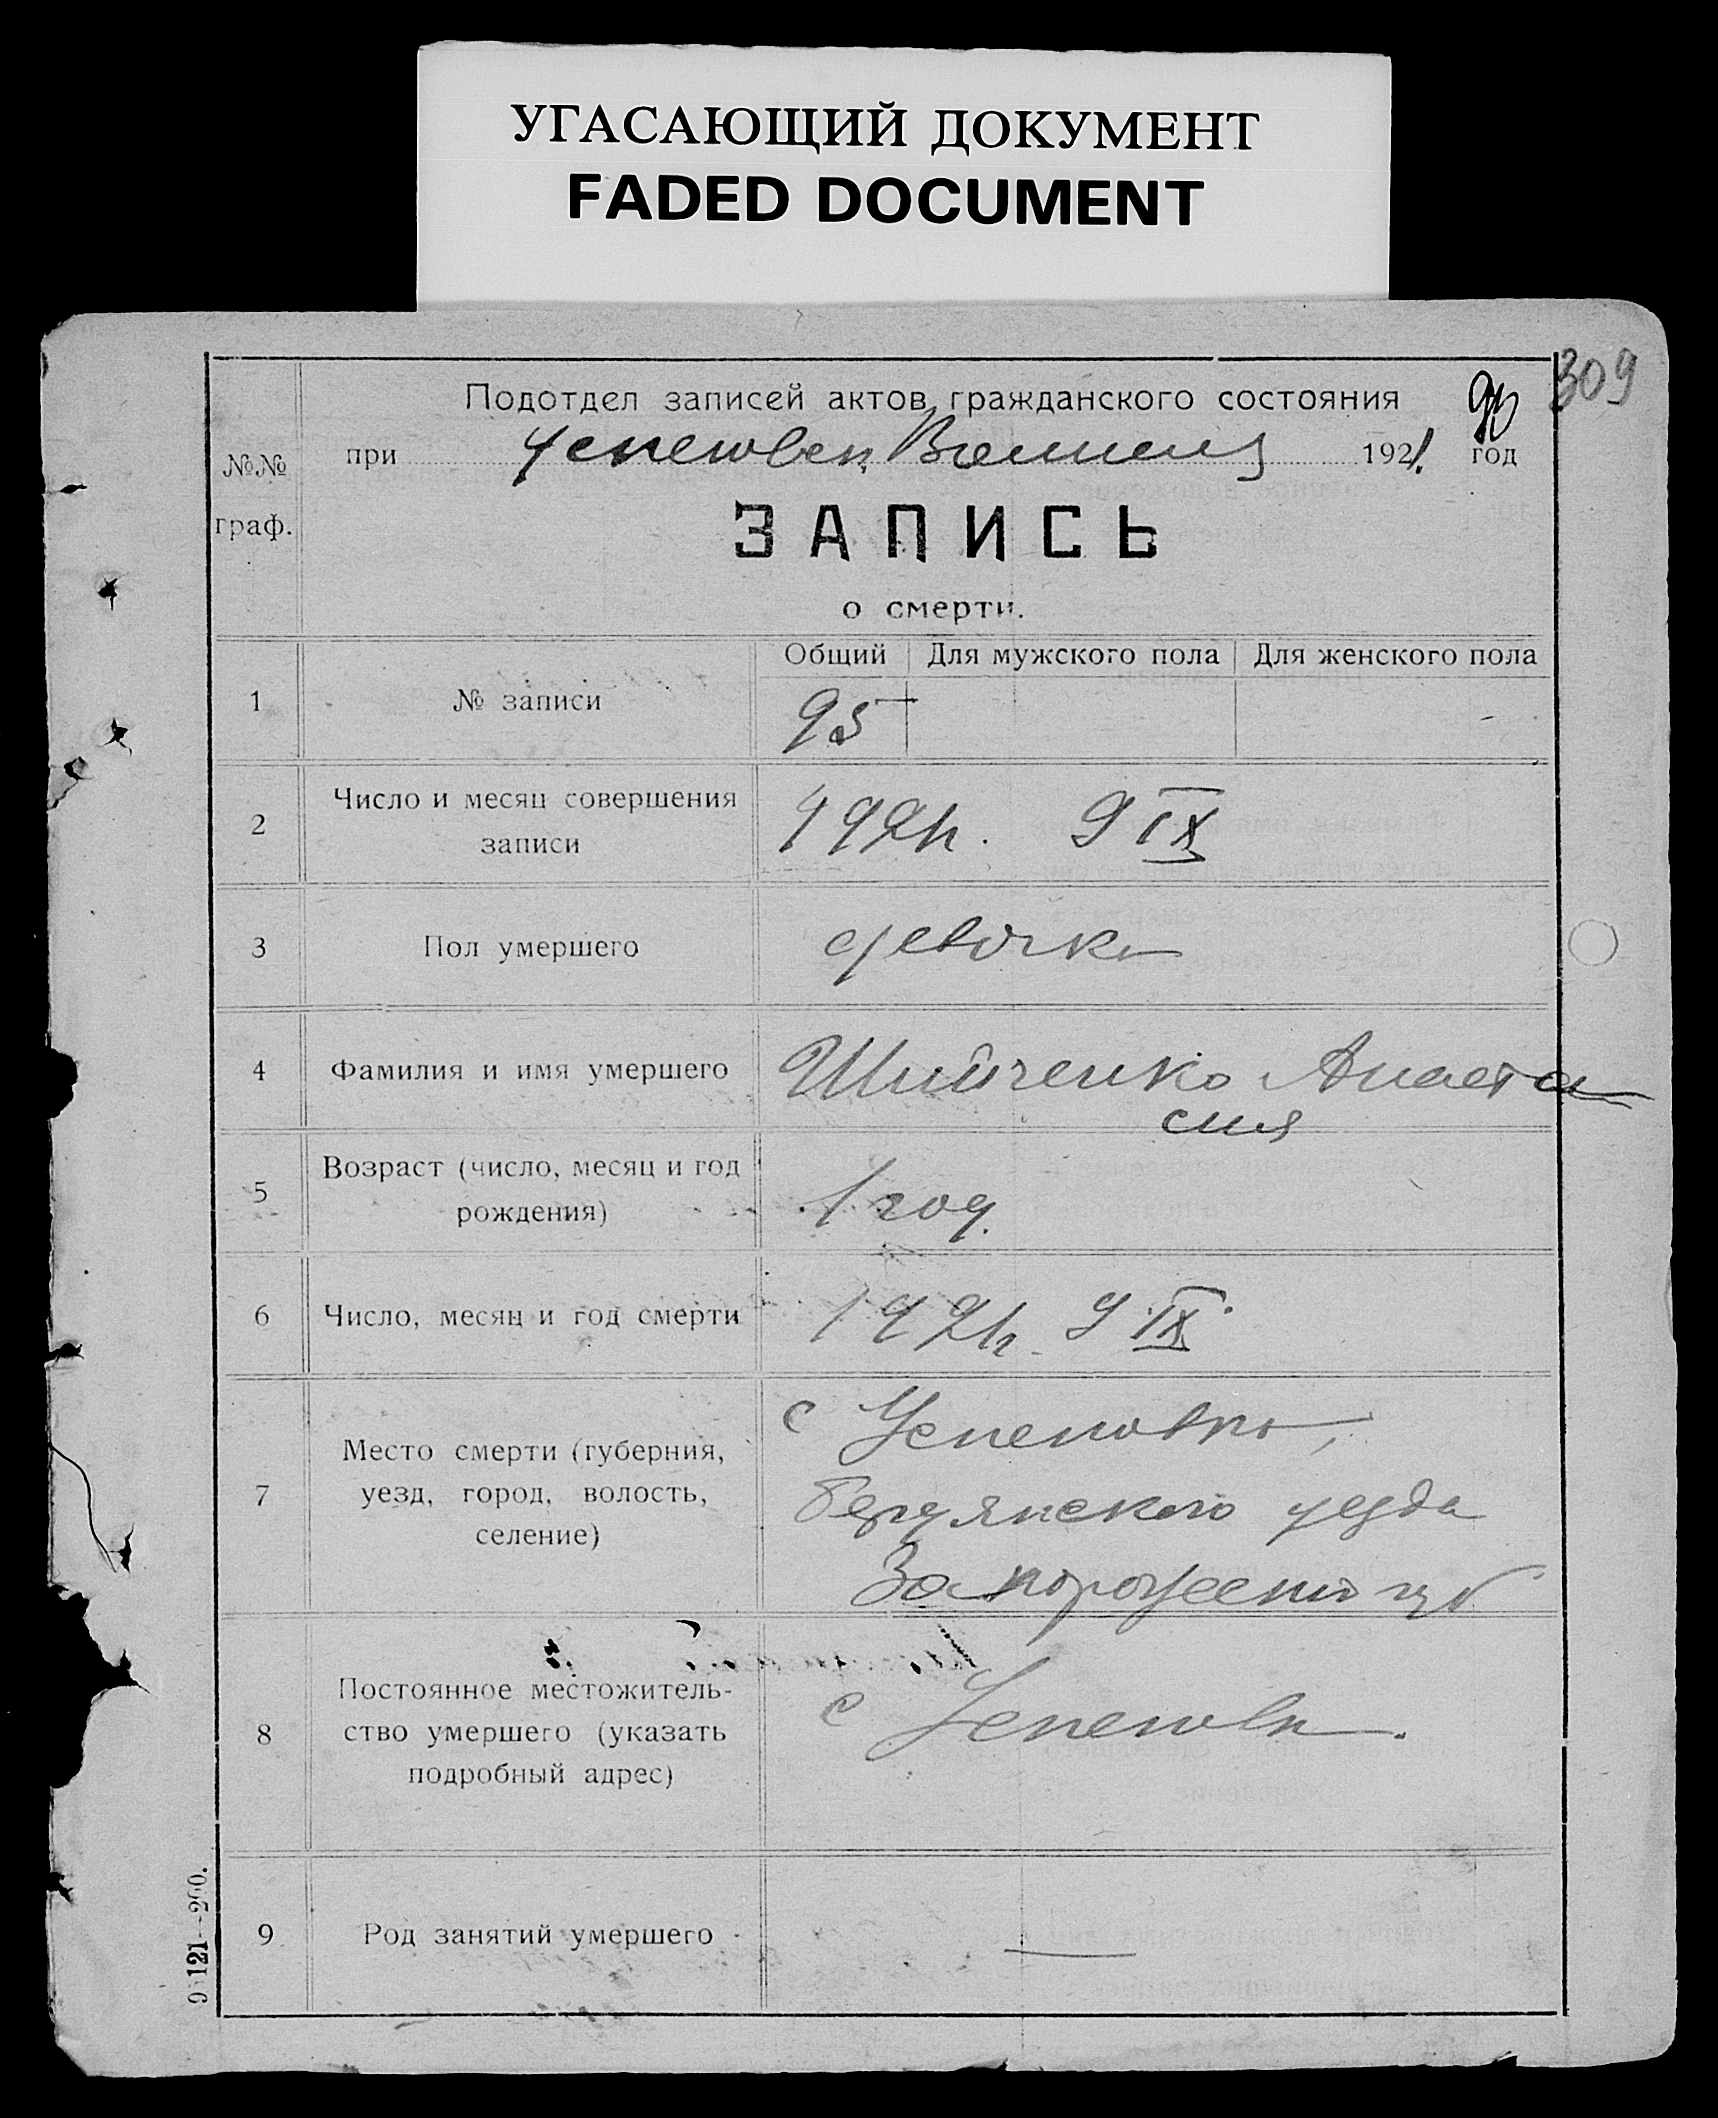 УГАСАЮЩИЙ ДОКУМЕНТ
FADED DOCUMENT
309
95
Подотдел записей актов гражданского состояния
№№
граф.
при Успеновск 1921 год
ЗАПИСЬ
о смерти.
Общий Для мужского пола Для женского пола
1 № записи 95
2 Число и месяц совершения
записи
1921 г. 9 IX
3 Пол умершего девочка
4 Фамилия и имя умершего Шийченко Анаста
сия
5 Возраст (число, месяц и год
рождения)
1 год.
6 Число, месяц и год смерти 1921 г. 9 IX
7 Место смерти (губерния,
уезд, город, волость,
селение)
с Успеновка,
бердянского уезда
Запорожской губ
8 Постоянное местожитель-
ство умершего (указать
подробный адрес)
с Успеновка.
9 Род занятий умершего —